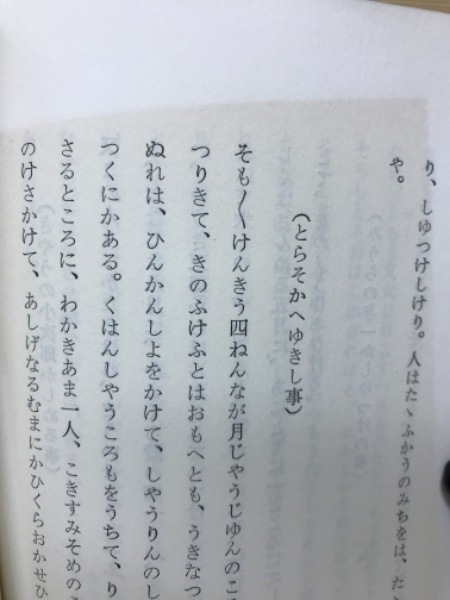 り、しゆつけしけり。人はたゝふかうのみちをは、た
や。
（とらそかへゆきし事）
そも〳〵けんきう四ねんなが月じやうじゆんのこ
つりきて、きのふけふとはおもへとも、うきなつ
ぬれは、ひんかんしよをかけて、しやうりんのし
つくにかある。くはんしやうころもをうちて、り
さるところに、わかきあま一人、こきすみそめの
のけさかけて、あしげなるむまにかひくらおかせひ